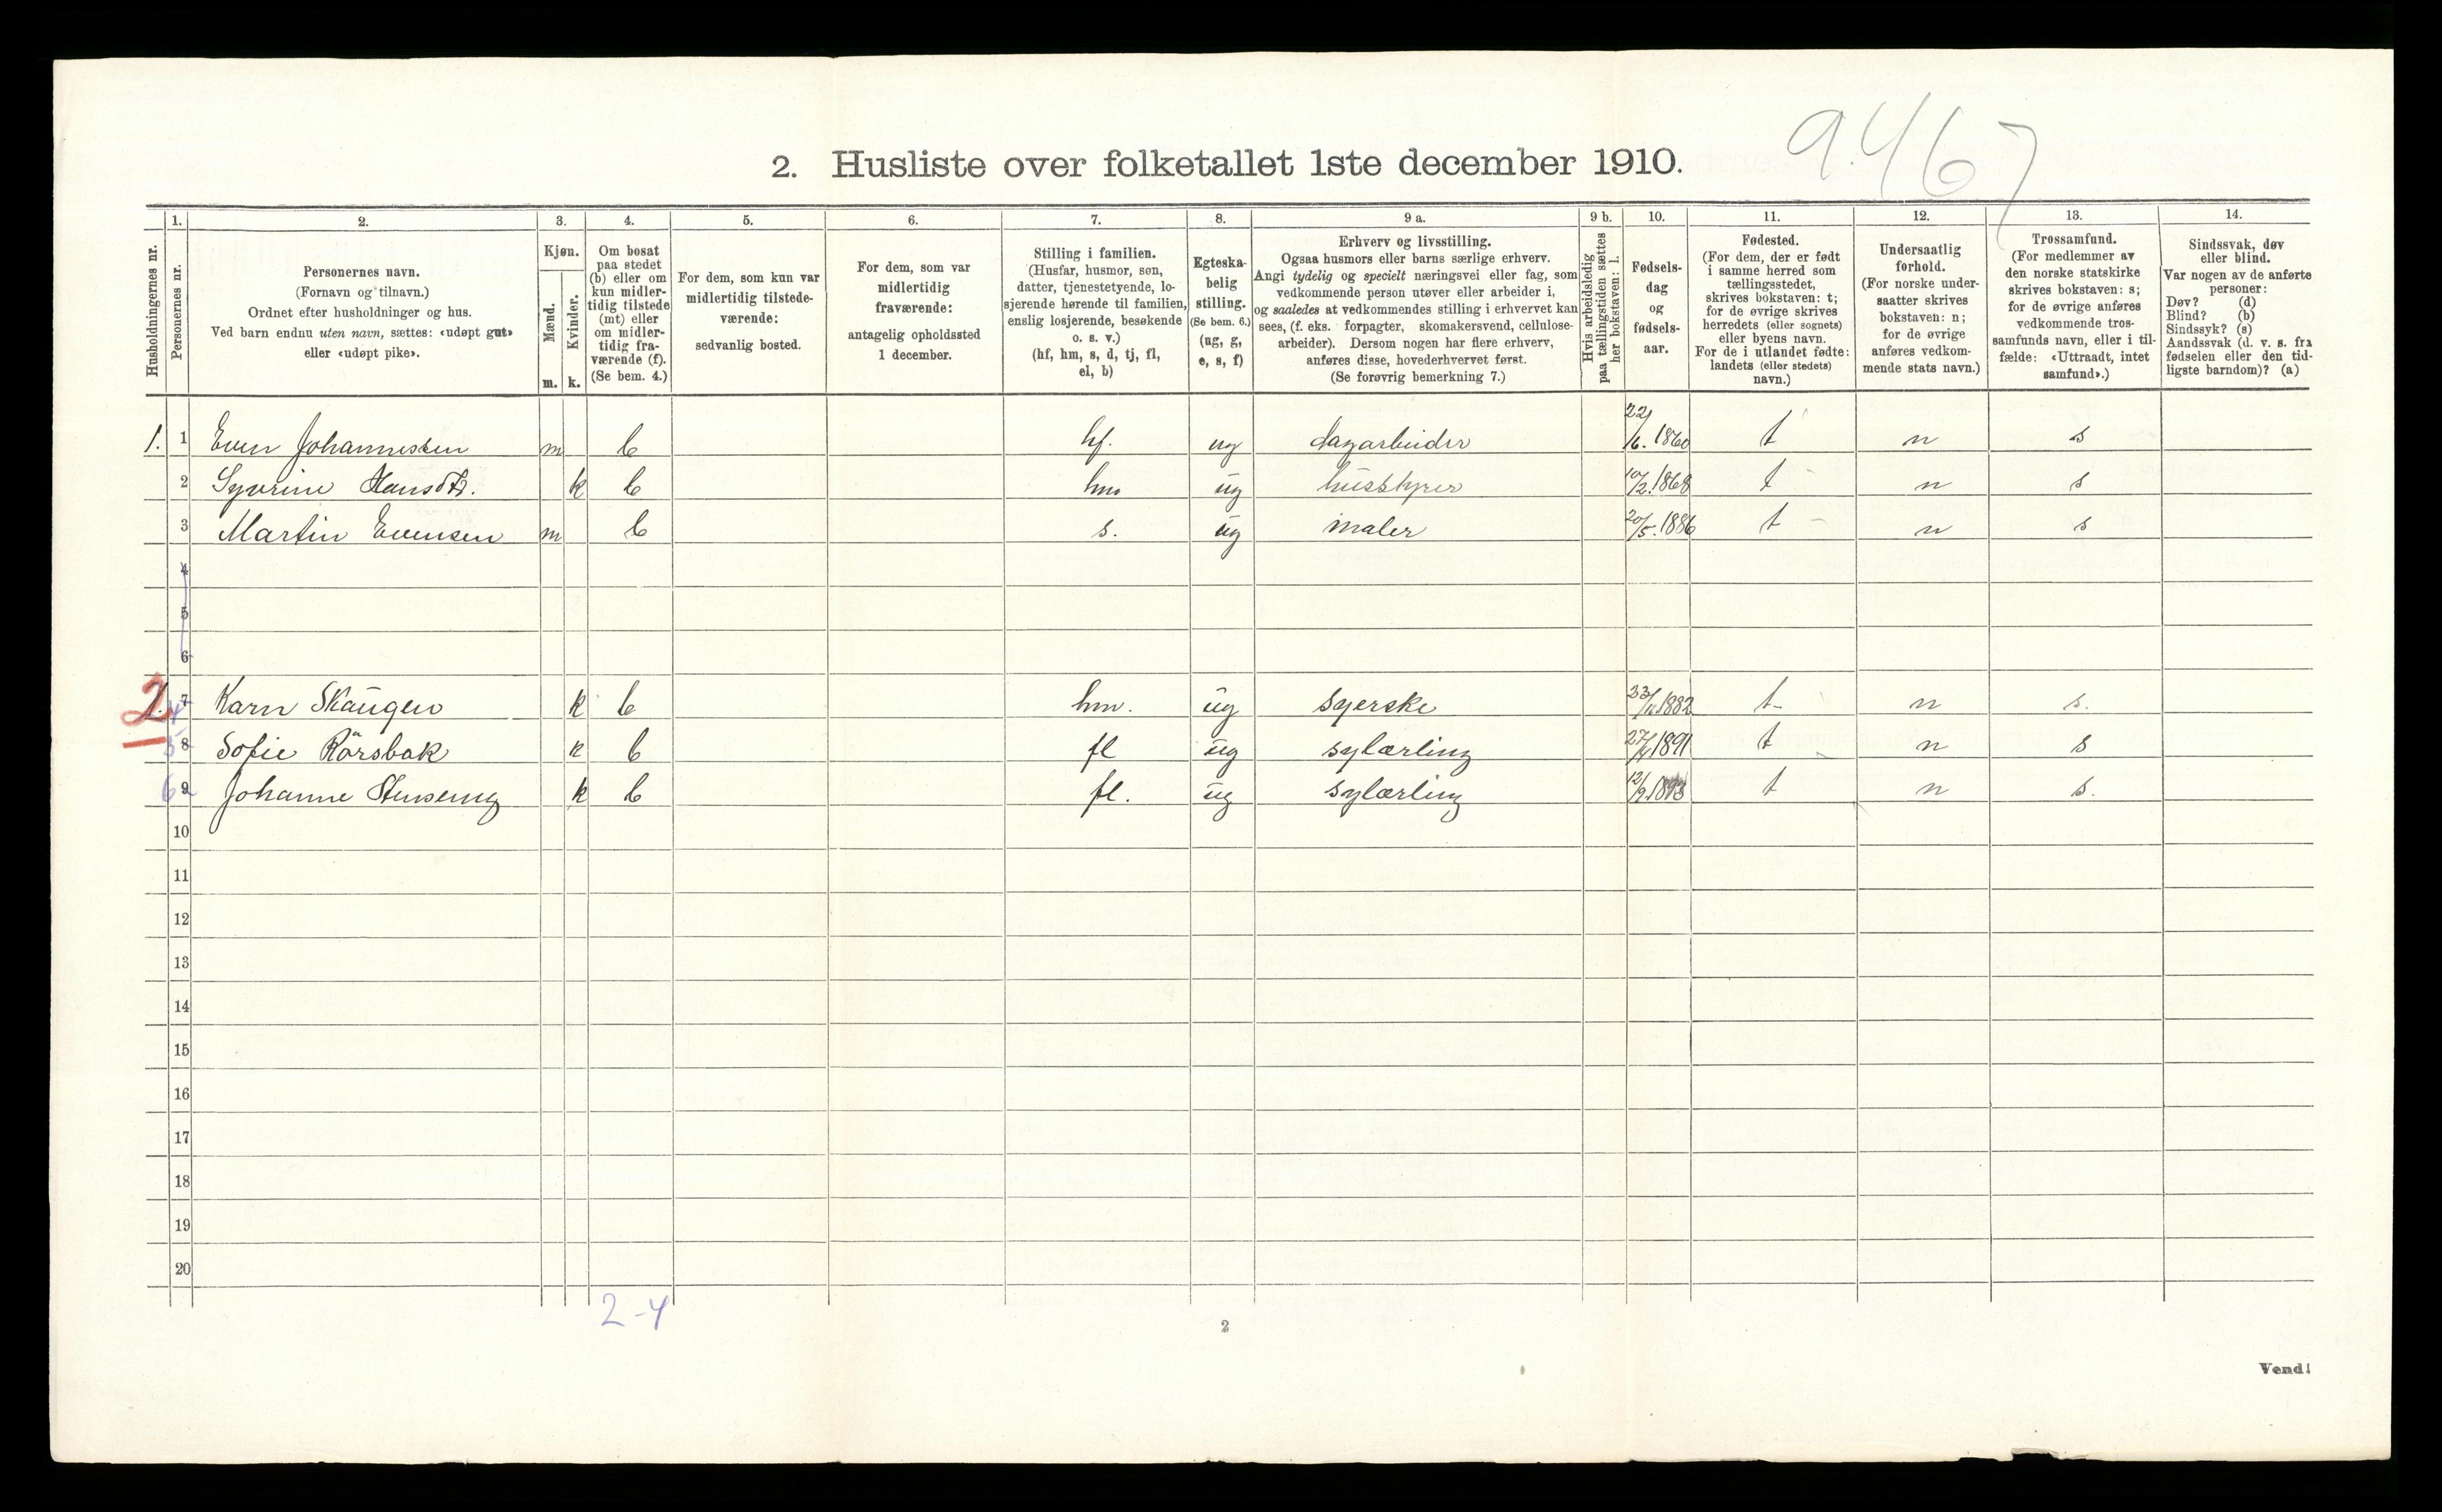 9.467
2. Husliste over folketallet 1ste december 1910.
Husholdningernes nr.
1. Personernes nr.
2. Personernes navn.
(Fornavn og tilnavn.)
Ordnet efter husholdninger og hus.
Ved barn endnu uten navn, sættes: «udøpt gut»
eller «udøpt pike».
3. Kjøn.
Mænd. m.
Kvinder. k.
4. Om bosat
paa stedet
(b) eller om
kun midler-
tidig tilstede
(mt) eller
om midler-
tidig fra-
værende (f).
(Se bem. 4.)
5. For dem, som kun var
midlertidig tilstede-
værende:
sedvanlig bosted.
6. For dem, som var
midlertidig
fraværende:
antagelig opholdssted
1 december.
7. Stilling i familien.
(Husfar, husmor, søn,
datter, tjenestetyende, lo-
sjerende hørende til familien,
enslig losjerende, besøkende
o. s. v.)
(hf, hm, s, d, tj, fl,
el, b)
8. Egteska-
belig
stilling.
(Se bem. 6.)
(ug, g,
e, s, f)
9 a. Erhverv og livsstilling.
Ogsaa husmors eller barns særlige erhverv.
Angi tydelig og specielt næringsvei eller fag, som
vedkommende person utøver eller arbeider i,
og saaledes at vedkommendes stilling i erhvervet kan
sees, (f. eks. forpagter, skomakersvend, cellulose-
arbeider). Dersom nogen har flere erhverv,
anføres disse, hovederhvervet først.
(Se forøvrig bemerkning 7.)
9 b. Hvis arbeidsledig
paa tællingstiden sættes
her bokstaven: l.
10. Fødsels-
dag
og
fødsels-
aar.
11. Fødested.
(For dem, der er født
i samme herred som
tællingsstedet,
skrives bokstaven: t;
for de øvrige skrives
herredets (eller sognets)
eller byens navn.
For de i utlandet fødte:
landets (eller stedets)
navn.)
12. Undersaatlig
forhold.
(For norske under-
saatter skrives
bokstaven: n;
for de øvrige
anføres vedkom-
mende stats navn.)
13. Trossamfund.
(For medlemmer av
den norske statskirke
skrives bokstaven: s;
for de øvrige anføres
vedkommende tros-
samfunds navn, eller i til-
fælde: «Uttraadt, intet
samfund».)
14. Sindssvak, døv
eller blind.
Var nogen av de anførte
personer:
Døv? (d)
Blind? (b)
Sindssyk? (s)
Aandssvak (d. v. s. fra
fødselen eller den tid-
ligste barndom)? (a)
1. 1 Even Johannessen m b hf. ug dagarbeider 22/6. 1860 t n s
2 Syverine Hansdtr. k b hm ug husstyrer 10/2. 1868 t n s
3 Martin Evensen m b s. ug maler 20/5. 1886 t n s
4
5
6
2 7 4 Karn Skaugen k b hm. ug syerske 1882 t n s.
8 5 Sofie Rörsbak k b fl ug sylærling 1891 t n s
9 6 Johanne Stenseng k b fl. ug sylærling 12/9. 1893 t n s.
10
11
12
13
14
15
16
17
18
19
20
2-4
2
Vend!